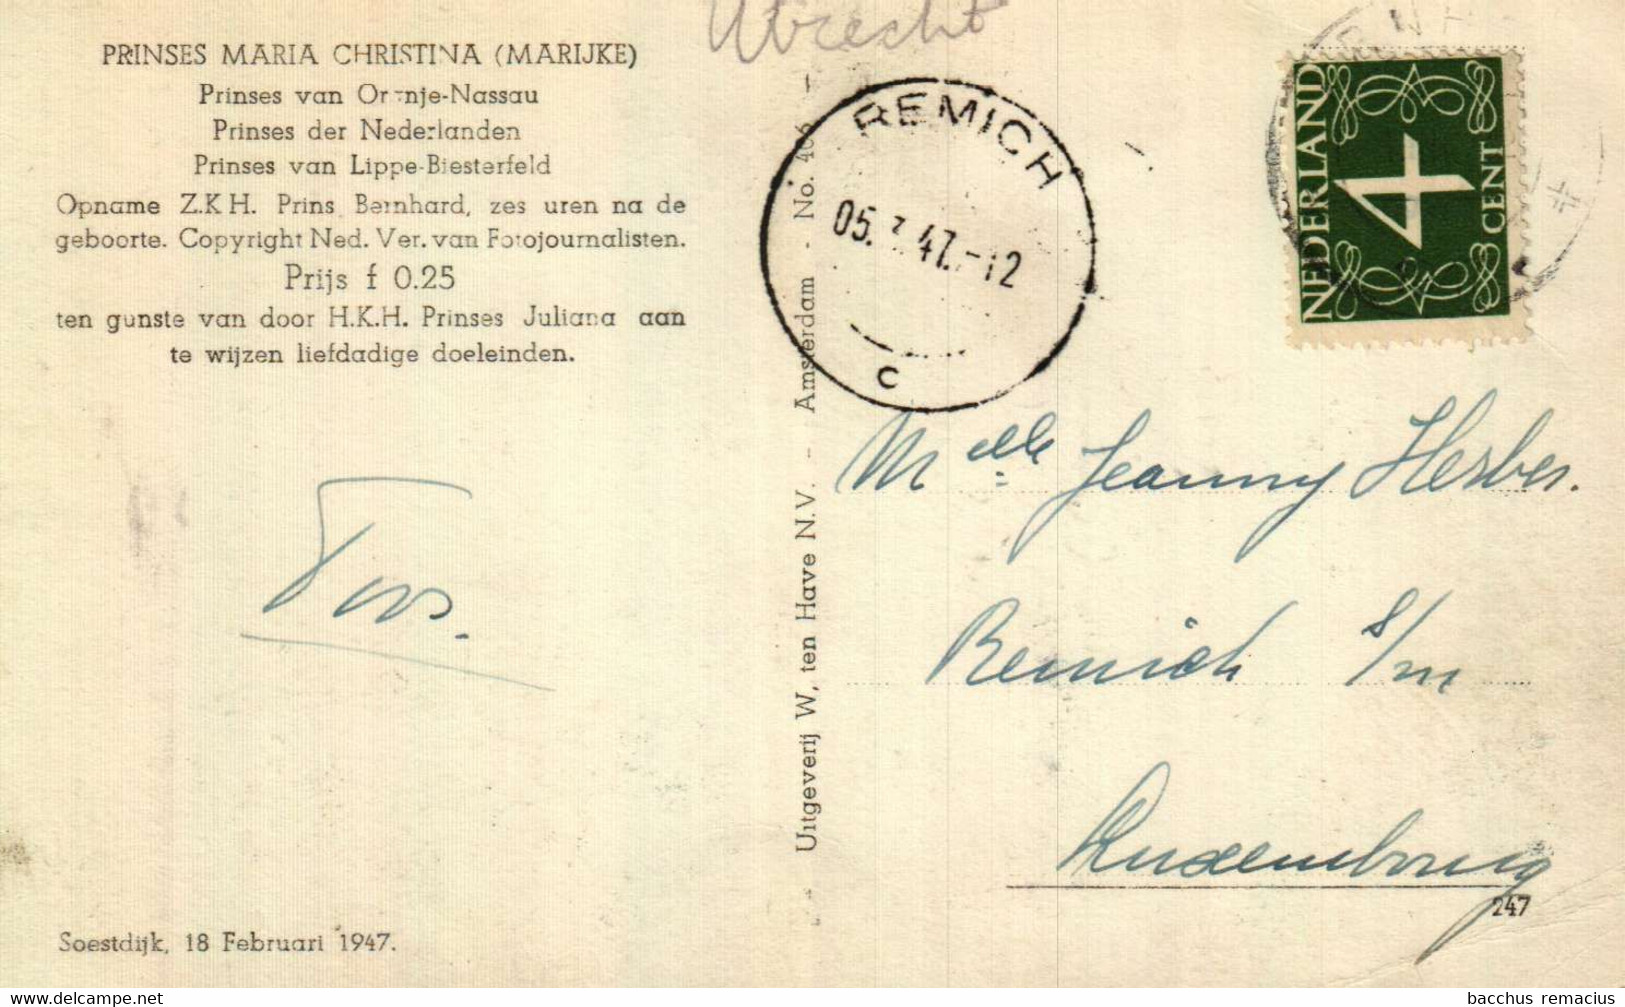 Utrecht
PRINSES MARIA CHRISTINA (MARIJKE)
Prinses van Oranje-Nassau
Prinses der Nederlanden
Prinses van Lippe-Biesterfeld
Opname Z.K H. Prins Bernhard, zes uren na de
geboorte. Copyright Ned. Ver. van Fotojournalisten.
Prijs f 0.25
ten gunste van door H.K.H. Prinses Juliana aan
te wijzen liefdadige doeleinden.
Toos.
Soestdijk, 18 Februari 1947.
Uitgeverij W, ten Have N.V. - Amsterdam - No. 46b -
REMICH
05. 3. 47.-12
C
NEDERLAND
4
CENT
Melle Jeanny Herber.
Remich s/m
Luxembourg
247
www.delcampe.net
bacchus remacius